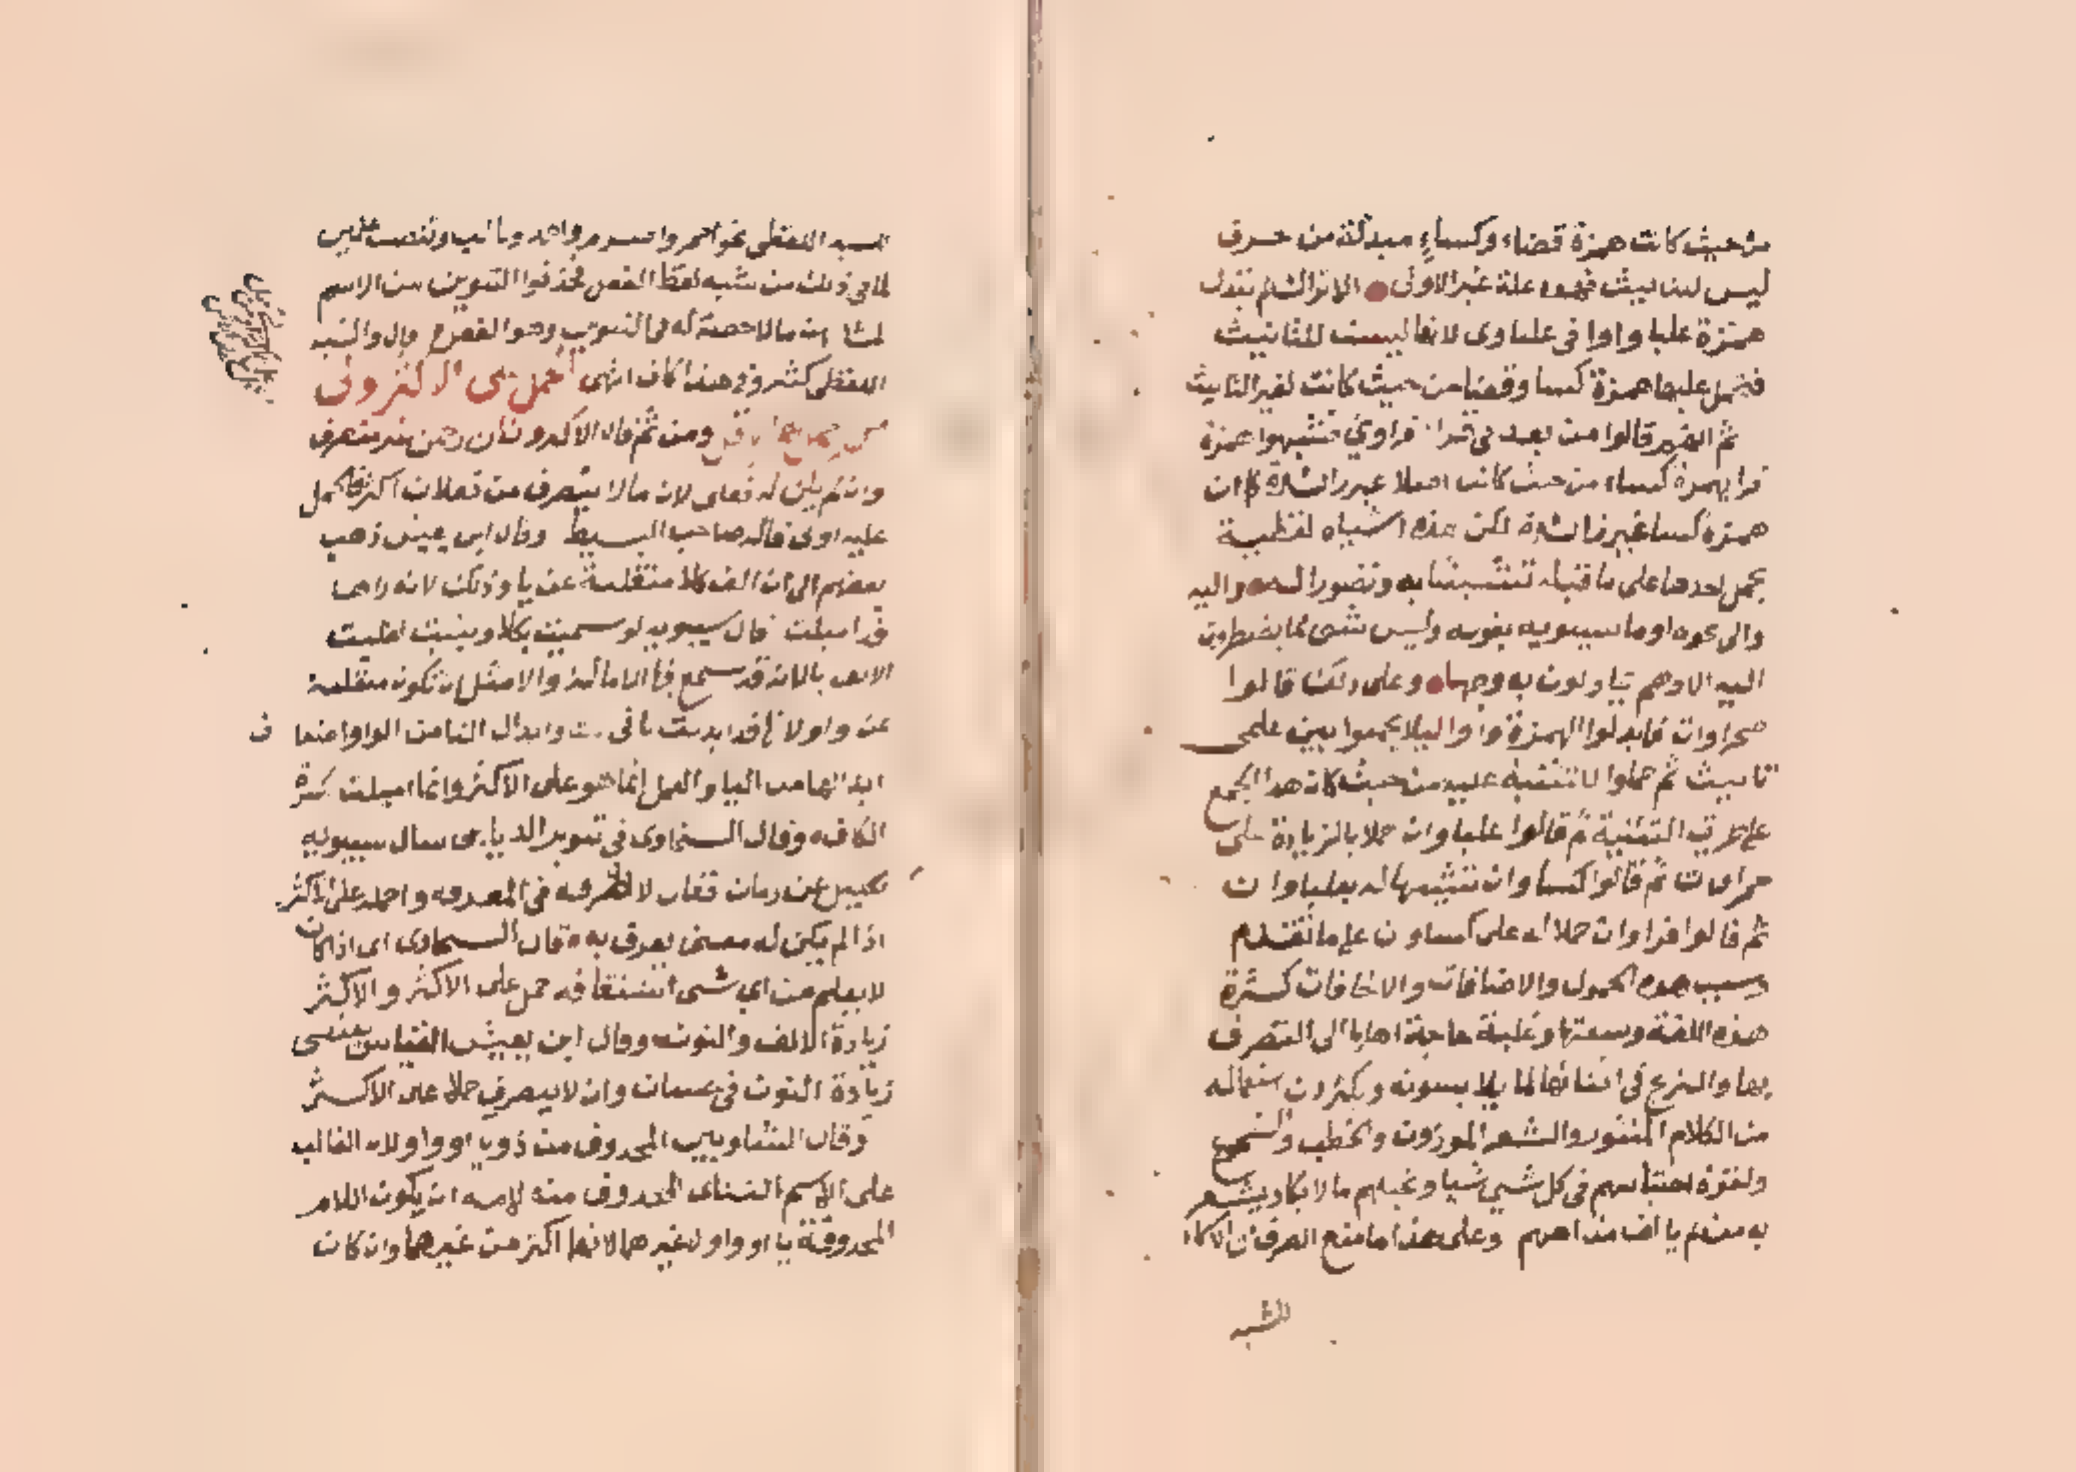 من حيث كانت همزة قضاء وكساء مبدلة من حرف
ليس لتانيث فهذه علة غير الاولى الا تراك لم تبدل
همزة علبا واوا في علباوى لانها ليست للتانيث
فتحمل عليها همزة كسا وقضا من حيث كانت لغير التانيث
ثم انهم قالوا من بعد في قرا قراوي فشبهوا همزة
قرا بهمزة كساء من حيث كانت اصلا غير زائدة كما ان
همزة كسا غير زائدة لكن هذه اشباه لفظية
يحمل احدها على ما قبله تشبثا به وتصورا له واليه
والى نحوه اوما سيبويه بقوله وليس شي مما يضطرون
اليه الا وهم يحاولون به وجها وعلى ذلك قالوا
صحراوات فابدلوا الهمزة واوا ليلا يجمعوا بين علمي
تانيث ثم حملوا التثنية عليه من حيث كان هذا الجمع
على طريق التثنية ثم قالوا علباوان حملا بالزيادة على
حمراوان ثم قالوا كساوان تشبيها له بعلباوان
ثم قالوا قراوان حملا له على كساوان على ما تقدم
وسبب هذه الحمول والاضافات والالحاقات كثرة
هذه اللغة وسعتها وغلبة حاجة اهلها الى التصرف
بها والتركح في اثنائها لما يلابسونه ويكثرون استعماله
من الكلام المنثور والشعر الموزون والخطب والسجوع
ولقوة احساسهم في كل شي شيا وتخيلهم ما لا يكاد يشعر
به من لم يالف مذاهبهم وعلى هذا ما منع الصرف من الاسماء
للشبه
للشبه اللفظي نحو احمر واصرم واحد وتالب وتنضب علمين
لما في ذلك من شبه لفظ الفعل فحذفوا التنوين من الاسم
لمشابهته ما لا حصة له في التنوين وهو الفعل والشبه
اللفظي كثير وفي هذا كاف انتهى الحمل على الاكثر اولى
من الحمل على الاقل ومن ثم قال الاكثرون ان رحمن غير منصرف
وان لم يكن له فعلى لان ما لا ينصرف من فعلان اكثر فالحمل
عليه اولى قاله صاحب البسيط وقال ابن يعيش ذهب
بعضهم الى ان الف كلا منقلبة عن يا وذلك لانه راها
قد اميلت قال سيبويه لو سميت بكلا وثنيت لقلبت
الالف يا لانه قد سمع فيها الامالة والامثل ان تكون منقلبة
عن واو لانها قد ابدلت تا في كلتا وابدال التا من الواو اضعاف
ابدالها من اليا والعمل انما هو على الاكثر وانما اميلت لكسرة
الكاف وقال السخاوى في تنوير الدياجي سال سيبويه
الخليل عن رمان فقال لا اصرفه في المعرفة واحمله على الاكثر
اذا لم يكن له معنى يعرف به قال السخاوى اي اذا كان
لا يعلم من اي شي اشتقاقه حمل على الاكثر والاكثر
زيادة الالف والنون وقال ابن يعيش القياس يقتضى
زيادة النون في حسان وان لا ينصرف حملا على الاكثر
وقال الشلوبين المحذوف من ذو يا او واو لان الغالب
على الاسم الثنائى المحذوف منه لامه ان يكون اللام
المحذوفة يا او واو لا غيرهما لانهما اكثر من غيرهما وان كان